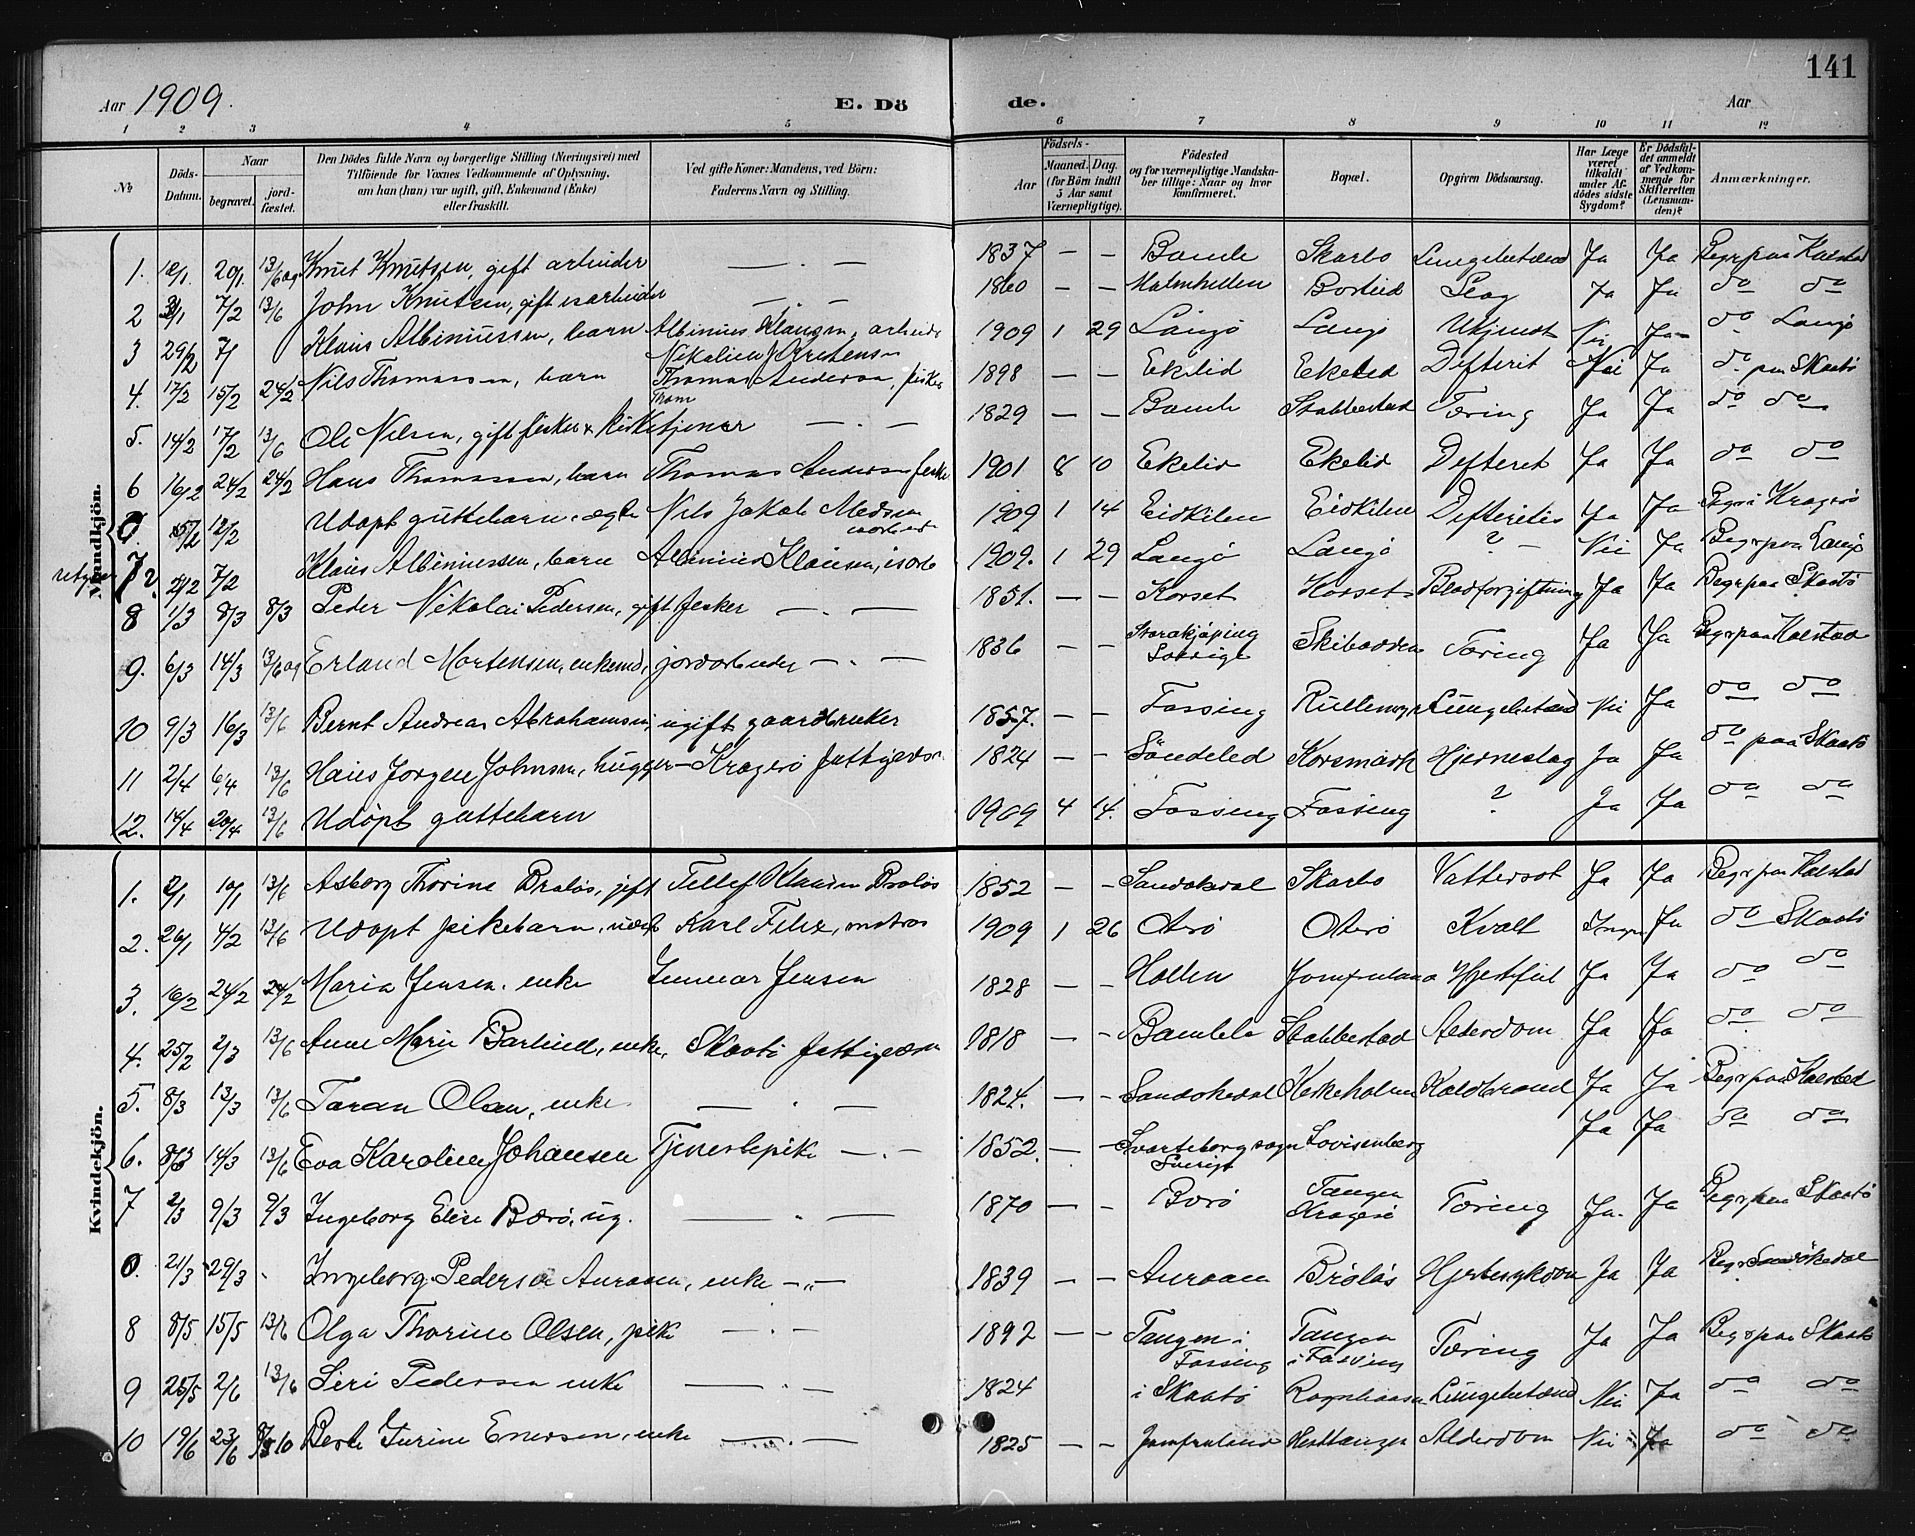 141
Aar 1909. E. Dö de. Aar
1 2 3 4 5 6 7 8 9 10 11 12
№ Döds-Datum. Naar begravet. jord-fæstet. Den Dödes fulde Navn og borgerlige Stilling (Næringsvei) med Tilföiende for Voxnes Vedkommende af Oplysning, om han (hun) var ugift, gift, Enkemand (Enke) eller fraskilt. Ved gifte Koner: Mandens, ved Börn: Faderens Navn og Stilling. Födsels- Aar Maaned. Dag. (for Börn indtil 5 Aar samt Værnepligtige). Födested og for værnepligtige Mandskaber tillige: Naar og hvor konfirmeret. Bopæl. Opgiven Dödsaarsag. Har Læge været tilkaldt under Afdödes sidste Sygdom? Er Dödsfaldet anmeldt af Vedkommende for Skifteretten (Lensmanden)? Anmærkninger.
Mandkjön.
1. 12/1 20/1 13/6 09 Knut Knutsen, gift arbeider — . — 1837 — — Bamle Skarbo Lungebetænd Ja Ja Begr paa Kalstad
2 7/2 13/6 John Knutsen, gift isarbeider — . — 1860 — — Malmhellen Borteid Slag Ja Ja do do
3 29/2 7/ Klaus Albinussen, barn Albinius Klausen, arbeide 1909 1 29 Langö Langö Ukjendt Nei Ja do Langö
4. 17/2 15/2 24/2 Nils Thomassen, barn Thomas Anderssen, fisker 1898 — — Ekelid Ekelid Difterit Nei Ja do paa Skaatö
5. 14/2 17/2 13/6 Ole Nilsen, gift fisker & kirketjener — . — 1829 — — Bamle Stabbestad Tæring Ja Ja do do
6 16/2 24/2 24/2 Hans Thomassen, barn Thomas Andersen fisker 1901 8 10 Ekelid Ekelid Difteret Ja Ja do do
0. 5/2 12/2 Udöpt guttebarn, ægte Nils Jakob Madsen 1909 1 14 Eidkilen Eidkilen Difterites Ja Ja Begr i Kragerö
7 7/2 Klaus Albinussen, barn Albinius Klausen, isarb 1909. 1 29 Langö Langö ? — Nei Ja Begr paa Langö
8 1/3 8/3 8/3 Peder Nikolai Pedersen, gift fisker — . — 1851. — — Korset Korset Blodforgiftning Ja Ja Begr paa Skaatö
9. 6/3 14/3 13/6 09 Erland Mortensen, enkemd, jordarbeider — . — 1836 — — Skibodden Tæring Ja Ja Begr paa Kalstad
10 9/3 16/3 13/6 Bernt Andreas Abrahamsen, ugift gaardbruker 1857. — — Fossing Lungebetænd Nei Ja do do
11 2/4 6/4 13/6 Hans Jörgen Johnsen, hugger — Kragerö fattigvæsen 1824 — — Söndeled Korsmark Hjerneslag Ja Ja do paa Skaatö
12. 14/4 20/4 13/6 Udöpt guttebarn 1909 4 14. Fossing Fossing ? Ja Ja do do
Kvindekjön.
1. 2/1 10/1 13/6 Asborg Thorine Braløs, gift Tellef Klausen Braløs 1852 — — Sandökedal Skarbo Vattersot Ja Ja Begr paa Kalstad
2. 26/1 4/2 13/6 Udöpt pikebarn, uægt Karl Felix, matros 1909 1 26 Öterö Öterö Kvalt Ingen Ja do Skaatö
3. 16/2 24/2 24/2 Maria Jensen, enke Gunnar Jensen 1828 — — Hollen Jomfruland Hjertefeil Ja Ja do do
4. 25/2 2/3 13/6 Anne Marie Barlind, enke, Skaatö fattigvæsen 1818 — — Bamble Stabbestad Alderdom Ja Ja do do
5. 8/3 13/3 13/6 Taran Olsen, enke — . — 1824. — — Sandökedal Kirkeholmen Koldbrand Ja Ja Begr paa Kalstad
6. 8/3 14/3 13/6 Eva Karoline Johansen Tjenestepike — . — 1852. — — Svarteborg sogn Sverige Lovisenberg Ja Ja do do
7 2/3 9/3 9/3 Ingeborg Elise Bærö, ug. — . — 1870 — — Berö Tangen Kragerö Tæring Ja. Ja Begr paa Skaatö
0. 21/3 29/3 - Ingeborg Pedersen Auraaen, enke — „ — 1839 — — Auraaen Bröløs Ja Ja Begr Sandökedal
8 8/5 15/5 13/6 Olga Thorine Olsen, pike — . — 1892 — — Tangen i Fossing Tangen i Fossing Tæring Ja Ja Begr paa Skaatö
9 25/5 2/6 13/6 Siri Pedersen enke — . — 1824 i Skaatö Lungebetænd Nei Ja do do
10 19/6 23/6 Berte Gurine Enersen, enke — . — 1825 — — Jomfruland Alderdom Nei Ja do do